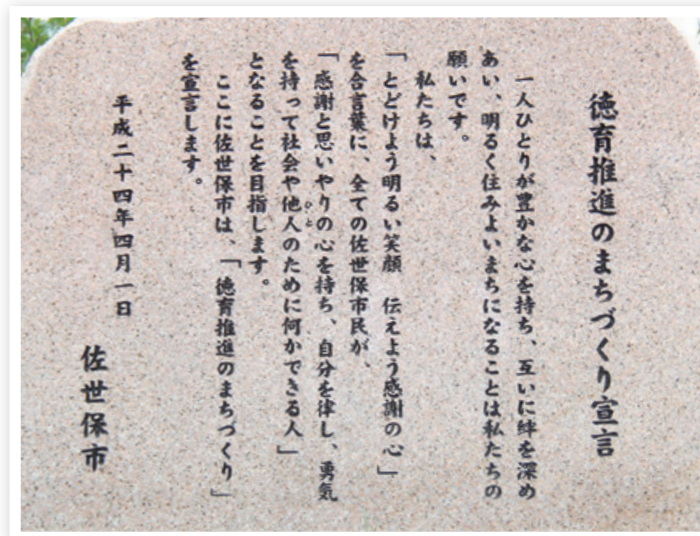 徳育推進のまちづくり宣言
一人ひとりが豊かな心を持ち、互いに絆を深め
あい、明るく住みよいまちになることは私たちの
願いです。
私たちは、
「とどけよう明るい笑顔　伝えよう感謝の心」
を合言葉に、全ての佐世保市民が、
「感謝と思いやりの心を持ち、自分を律し、勇気
を持って社会や他人のために何かできる人」
となることを目指します。
ここに佐世保市は、「徳育推進のまちづくり」
を宣言します。
平成二十四年四月一日
佐世保市